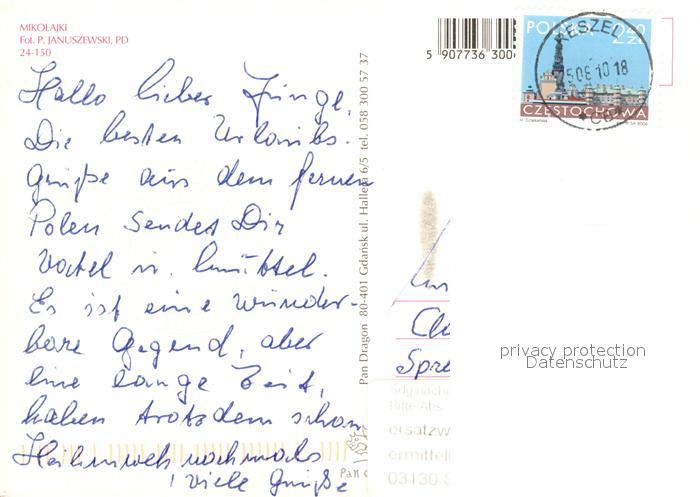 MIKOŁAJKI
Fot. P. JANUSZEWSKI, PD
24-150
Hallo lieber Junge,
Die besten Urlaubs-
grüße aus dem fernen
Polen sendet Dir
Vatel u. Muttel.
Es ist eine wunder-
bare Gegend, aber
eine lange Zeit,
haben trotzdem schon
Heimweh nochmals
viele Grüße
Pan Dragon 80-401 Gdańsk ul. Hallera 6/5 tel. 058 300 57 37
5 907736 300
POLSKA 2
CZĘSTOCHOWA
RESZEL
10 18
Spre
privacy protection
Datenschutz
Bitte Abs
ersatzw
ermittel
03130 S